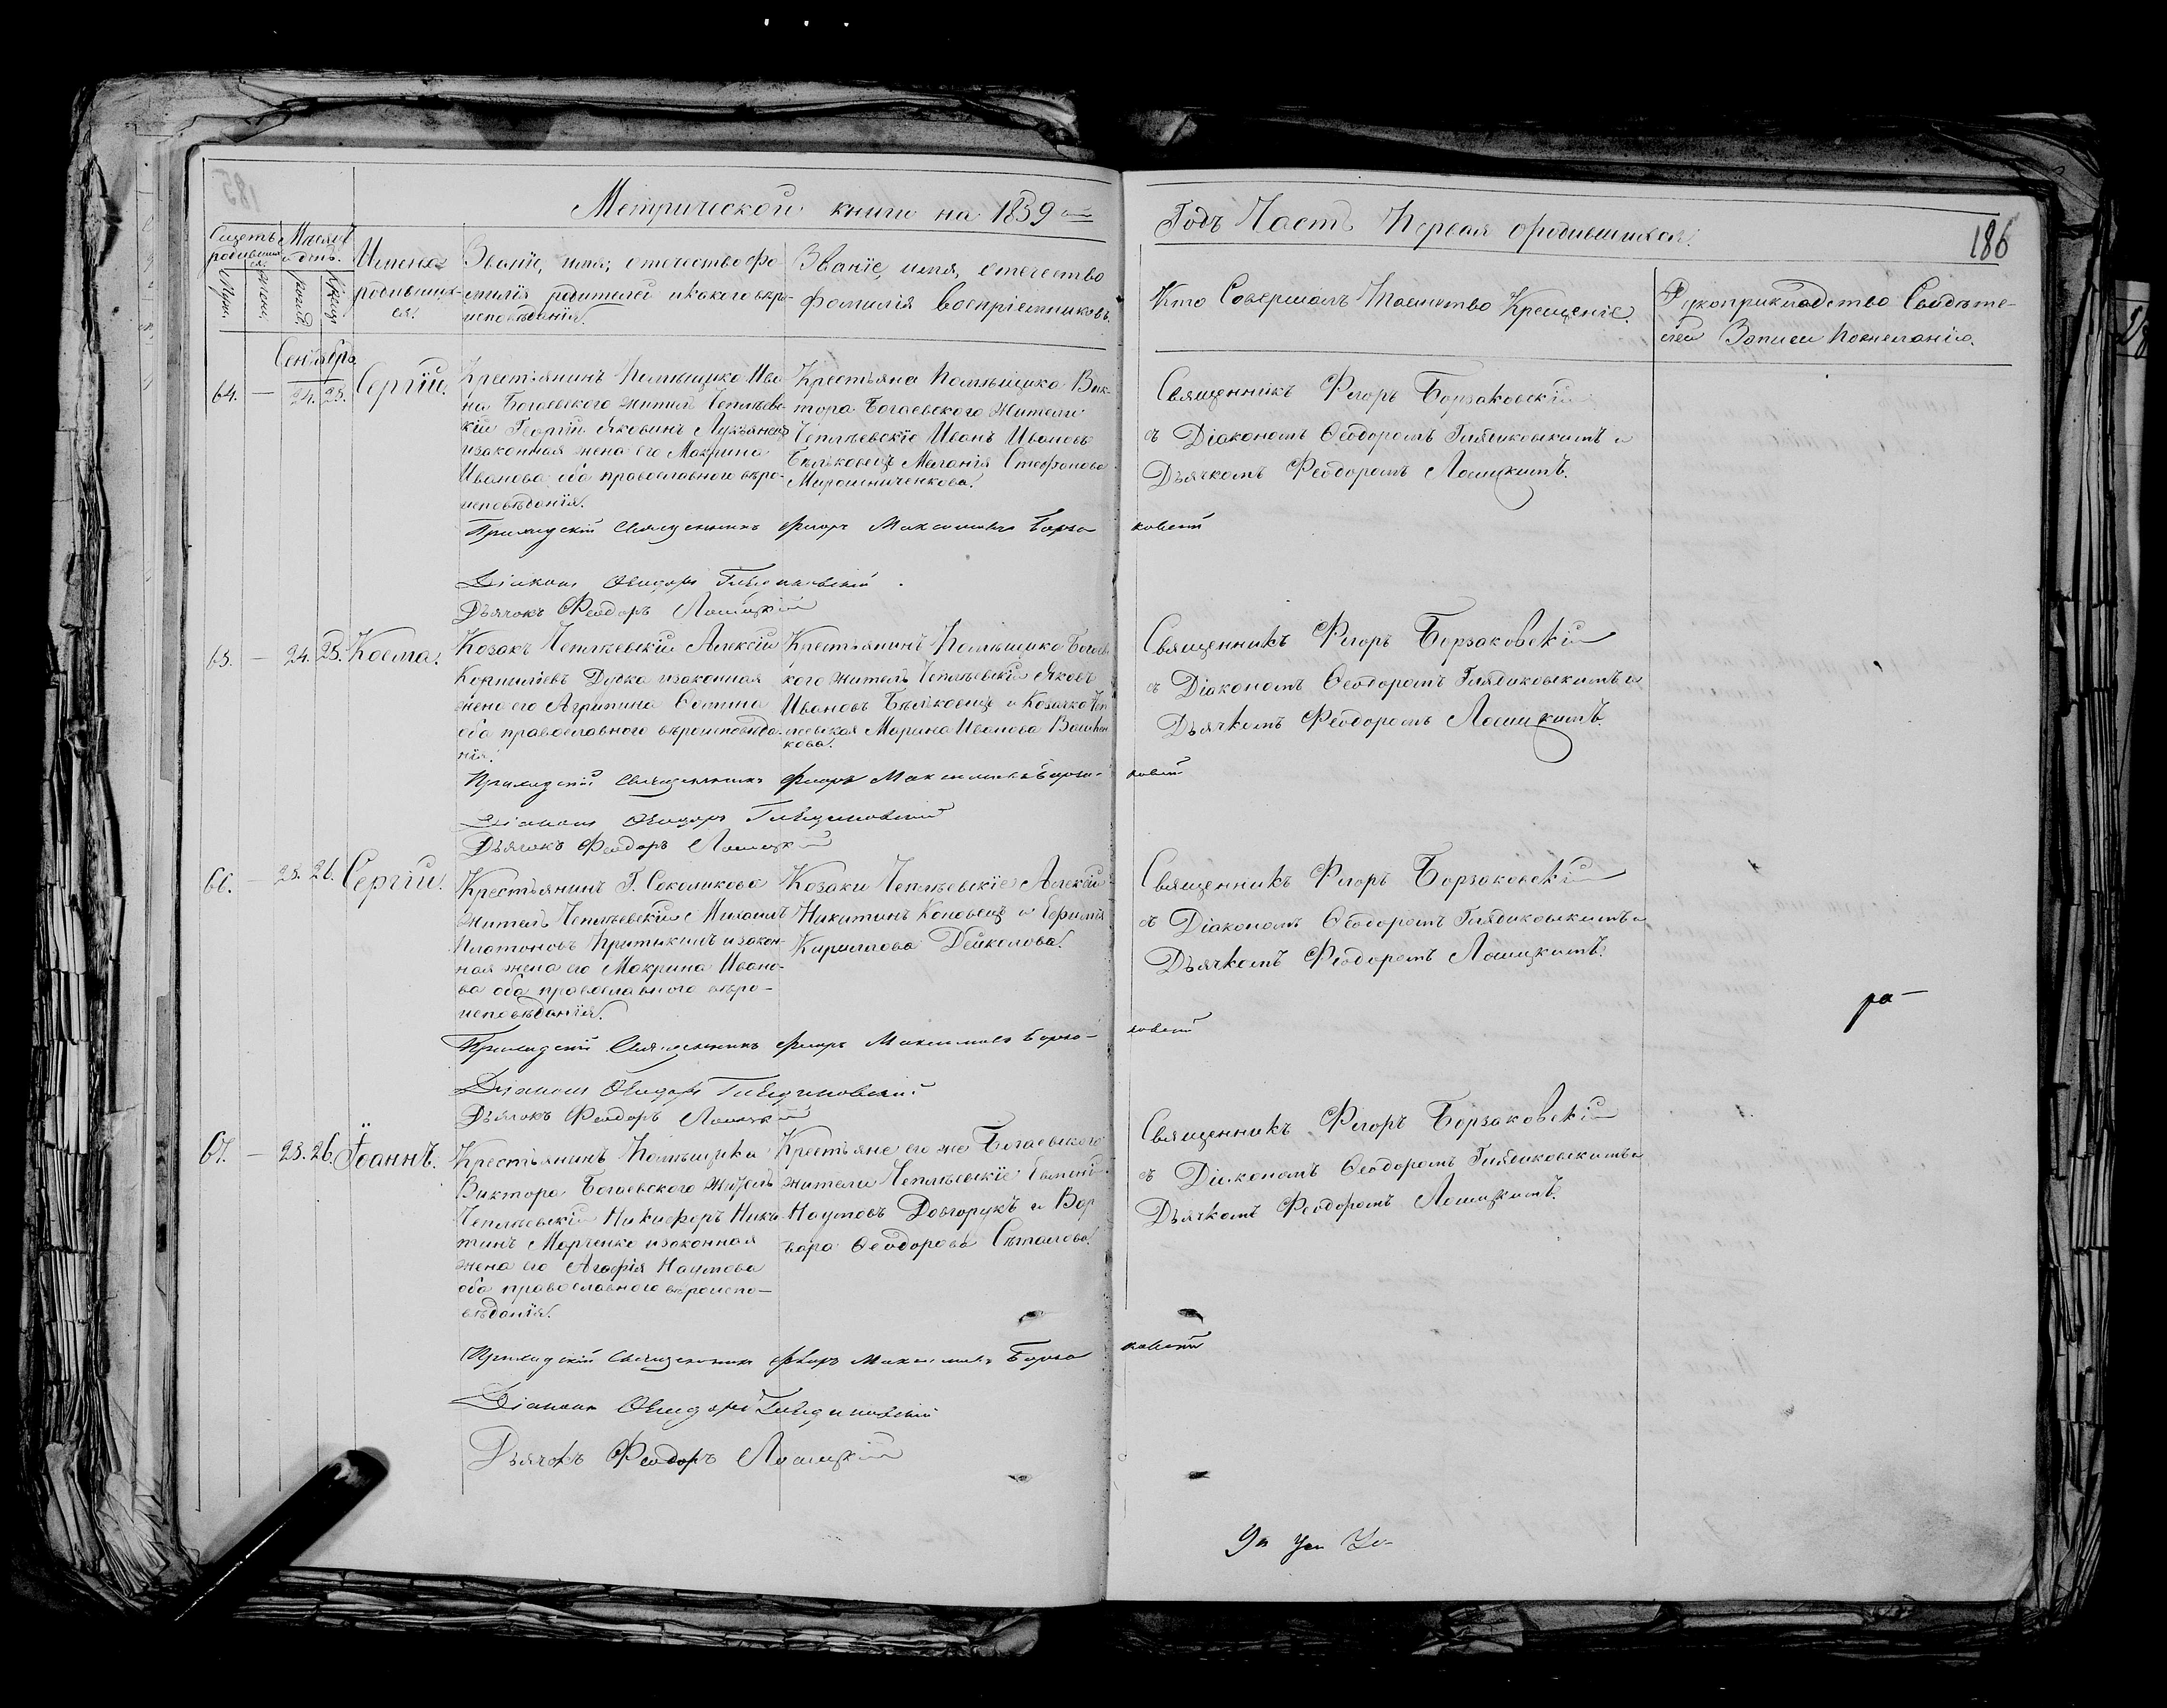 Метрической книги на 1859 й
Годъ Часть Первая о родившихся.
186
Счетъ родившихся.
Мѣсяцъ и день.
Имена родившихся.
Званіе, имя, отечество фа-
милія родителей и какого вѣро-
исповѣданія.
Званіе, имя, отечество
фамилія воспріемниковъ.
Кто Совершалъ Таинство Крещеніе.
Рукоприкладство Свидѣте-
лей Записи по желанію.
Сентябрь
64. — 24. 25. Сергій.
Крестьянинъ Помѣщика Ива-
на Богаевского житель Чепилѣвс-
кій Георгій Яковинъ Лукьянецъ
и законная жена его Макрина
Иванова, оба православного вѣро-
исповѣданія.
Крестьяна Помѣщика Вик-
тора Богаевского жители
Чепилѣвскіе Иванъ Ивановъ
Бѣлковецъ Меланія Стефанова
Мирошниченкова.
Священникъ Флоръ Борзаковскій
съ Діакономъ Ѳеодоромъ и
Дьячкомъ Феодоромъ Лошицкимъ.
Приходскій Священникъ Флоръ Максимовъ Борза-
ковскій
Діаконъ
Дьячокъ Феодоръ Лошицкій
65. — 24. 25. Косма.
Козакъ Чепилѣвскій Алексій
Корнилievъ Дудка и законная
жена его Агрипина Фомина
оба православного вѣроисповѣда-
нія.
Крестьянинъ Помѣщика Богаевс-
кого житель Чепилѣвскій Яковъ
Ивановъ Бѣлковецъ и Козачка Чеп
илѣвская Марина Иванова
кова.
Священникъ Флоръ Борзаковскій
съ Діакономъ Ѳеодоромъ и
Дьячкомъ Феодоромъ Лошицкимъ.
Приходскій Священникъ Флоръ Максимовъ Борза-
ковскій
Діаконъ
Дьячокъ Феодоръ Лошицкій
66. — 25. 26. Сергій.
Крестьянинъ Г. Соколикова
житель Чепилѣвскій Михаилъ
Платоновъ Притыкинъ и закон-
ная жена его Макрина Ивано-
ва оба православного вѣро-
исповѣданія.
Козаки Чепилѣвскіе Алексій
Никитинъ Коновецъ и Ефимія
Кириллова Дейкалова.
Священникъ Флоръ Борзаковскій
съ Діакономъ Ѳеодоромъ и
Дьячкомъ Феодоромъ Лошицкимъ.
ра—
Приходскій Священникъ Флоръ Максимовъ Борза-
ковскій
Діаконъ
Дьячокъ Феодоръ Лошицкій
67. — 25. 26. Іоаннъ.
Крестьянинъ Помѣщика
Виктора Богаевского житель
Чепилѣвскій Никифоръ Ники-
тинъ Марченко и законная
жена его Агафія Наумова
оба православного вѣроиспо-
вѣданія.
Крестьяне его же Богаевского
жители Чепилѣвскіе
Наумовъ Довгорукъ и Вар
вара Ѳеодорова
Священникъ Флоръ Борзаковскій
съ Діакономъ Ѳеодоромъ и
Дьячкомъ Феодоромъ Лошицкимъ.
Приходскій Священникъ Флоръ Максимовъ Борза
ковскій
Діаконъ
Дьячокъ Феодоръ Лошицкій